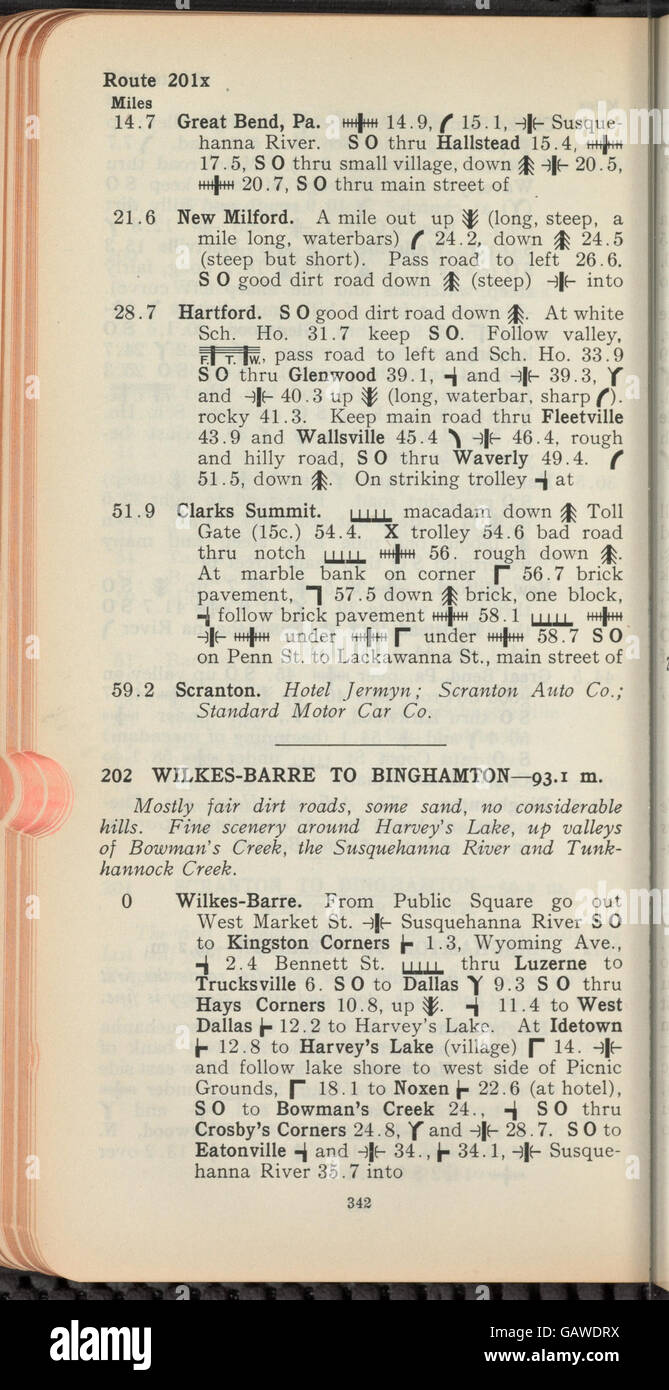 Route 201x
Miles
14.7 Great Bend, Pa. 14.9, 15.1, Susque-
hanna River. S O thru Hallstead 15.4,
17.5, S O thru small village, down 20.5,
20.7, S O thru main street of
21.6 New Milford. A mile out up (long, steep, a
mile long, waterbars) 24.2, down 24.5
(steep but short). Pass road to left 26.6.
S O good dirt road down (steep) into
28.7 Hartford. S O good dirt road down . At white
Sch. Ho. 31.7 keep S O. Follow valley,
F. T. W., pass road to left and Sch. Ho. 33.9
S O thru Glenwood 39.1, and 39.3,
and 40.3 up (long, waterbar, sharp ).
rocky 41.3. Keep main road thru Fleetville
43.9 and Wallsville 45.4 46.4, rough
and hilly road, S O thru Waverly 49.4.
51.5, down . On striking trolley at
51.9 Clarks Summit. macadam down Toll
Gate (15c.) 54.4. X trolley 54.6 bad road
thru notch 56. rough down .
At marble bank on corner 56.7 brick
pavement, 57.5 down brick, one block,
follow brick pavement 58.1
under under 58.7 S O
on Penn St. to Lackawanna St., main street of
59.2 Scranton. Hotel Jermyn; Scranton Auto Co.;
Standard Motor Car Co.
202 WILKES-BARRE TO BINGHAMTON—93.1 m.
Mostly fair dirt roads, some sand, no considerable
hills. Fine scenery around Harvey's Lake, up valleys
of Bowman's Creek, the Susquehanna River and Tunk-
hannock Creek.
0 Wilkes-Barre. From Public Square go out
West Market St. Susquehanna River S O
to Kingston Corners 1.3, Wyoming Ave.,
2.4 Bennett St. thru Luzerne to
Trucksville 6. S O to Dallas 9.3 S O thru
Hays Corners 10.8, up . 11.4 to West
Dallas 12.2 to Harvey's Lake. At Idetown
12.8 to Harvey's Lake (village) 14.
and follow lake shore to west side of Picnic
Grounds, 18.1 to Noxen 22.6 (at hotel),
S O to Bowman's Creek 24., S O thru
Crosby's Corners 24.8, and 28.7. S O to
Eatonville and 34., 34.1, Susque-
hanna River 35.7 into
342
alamy
Image ID: GAWDRX
www.alamy.com